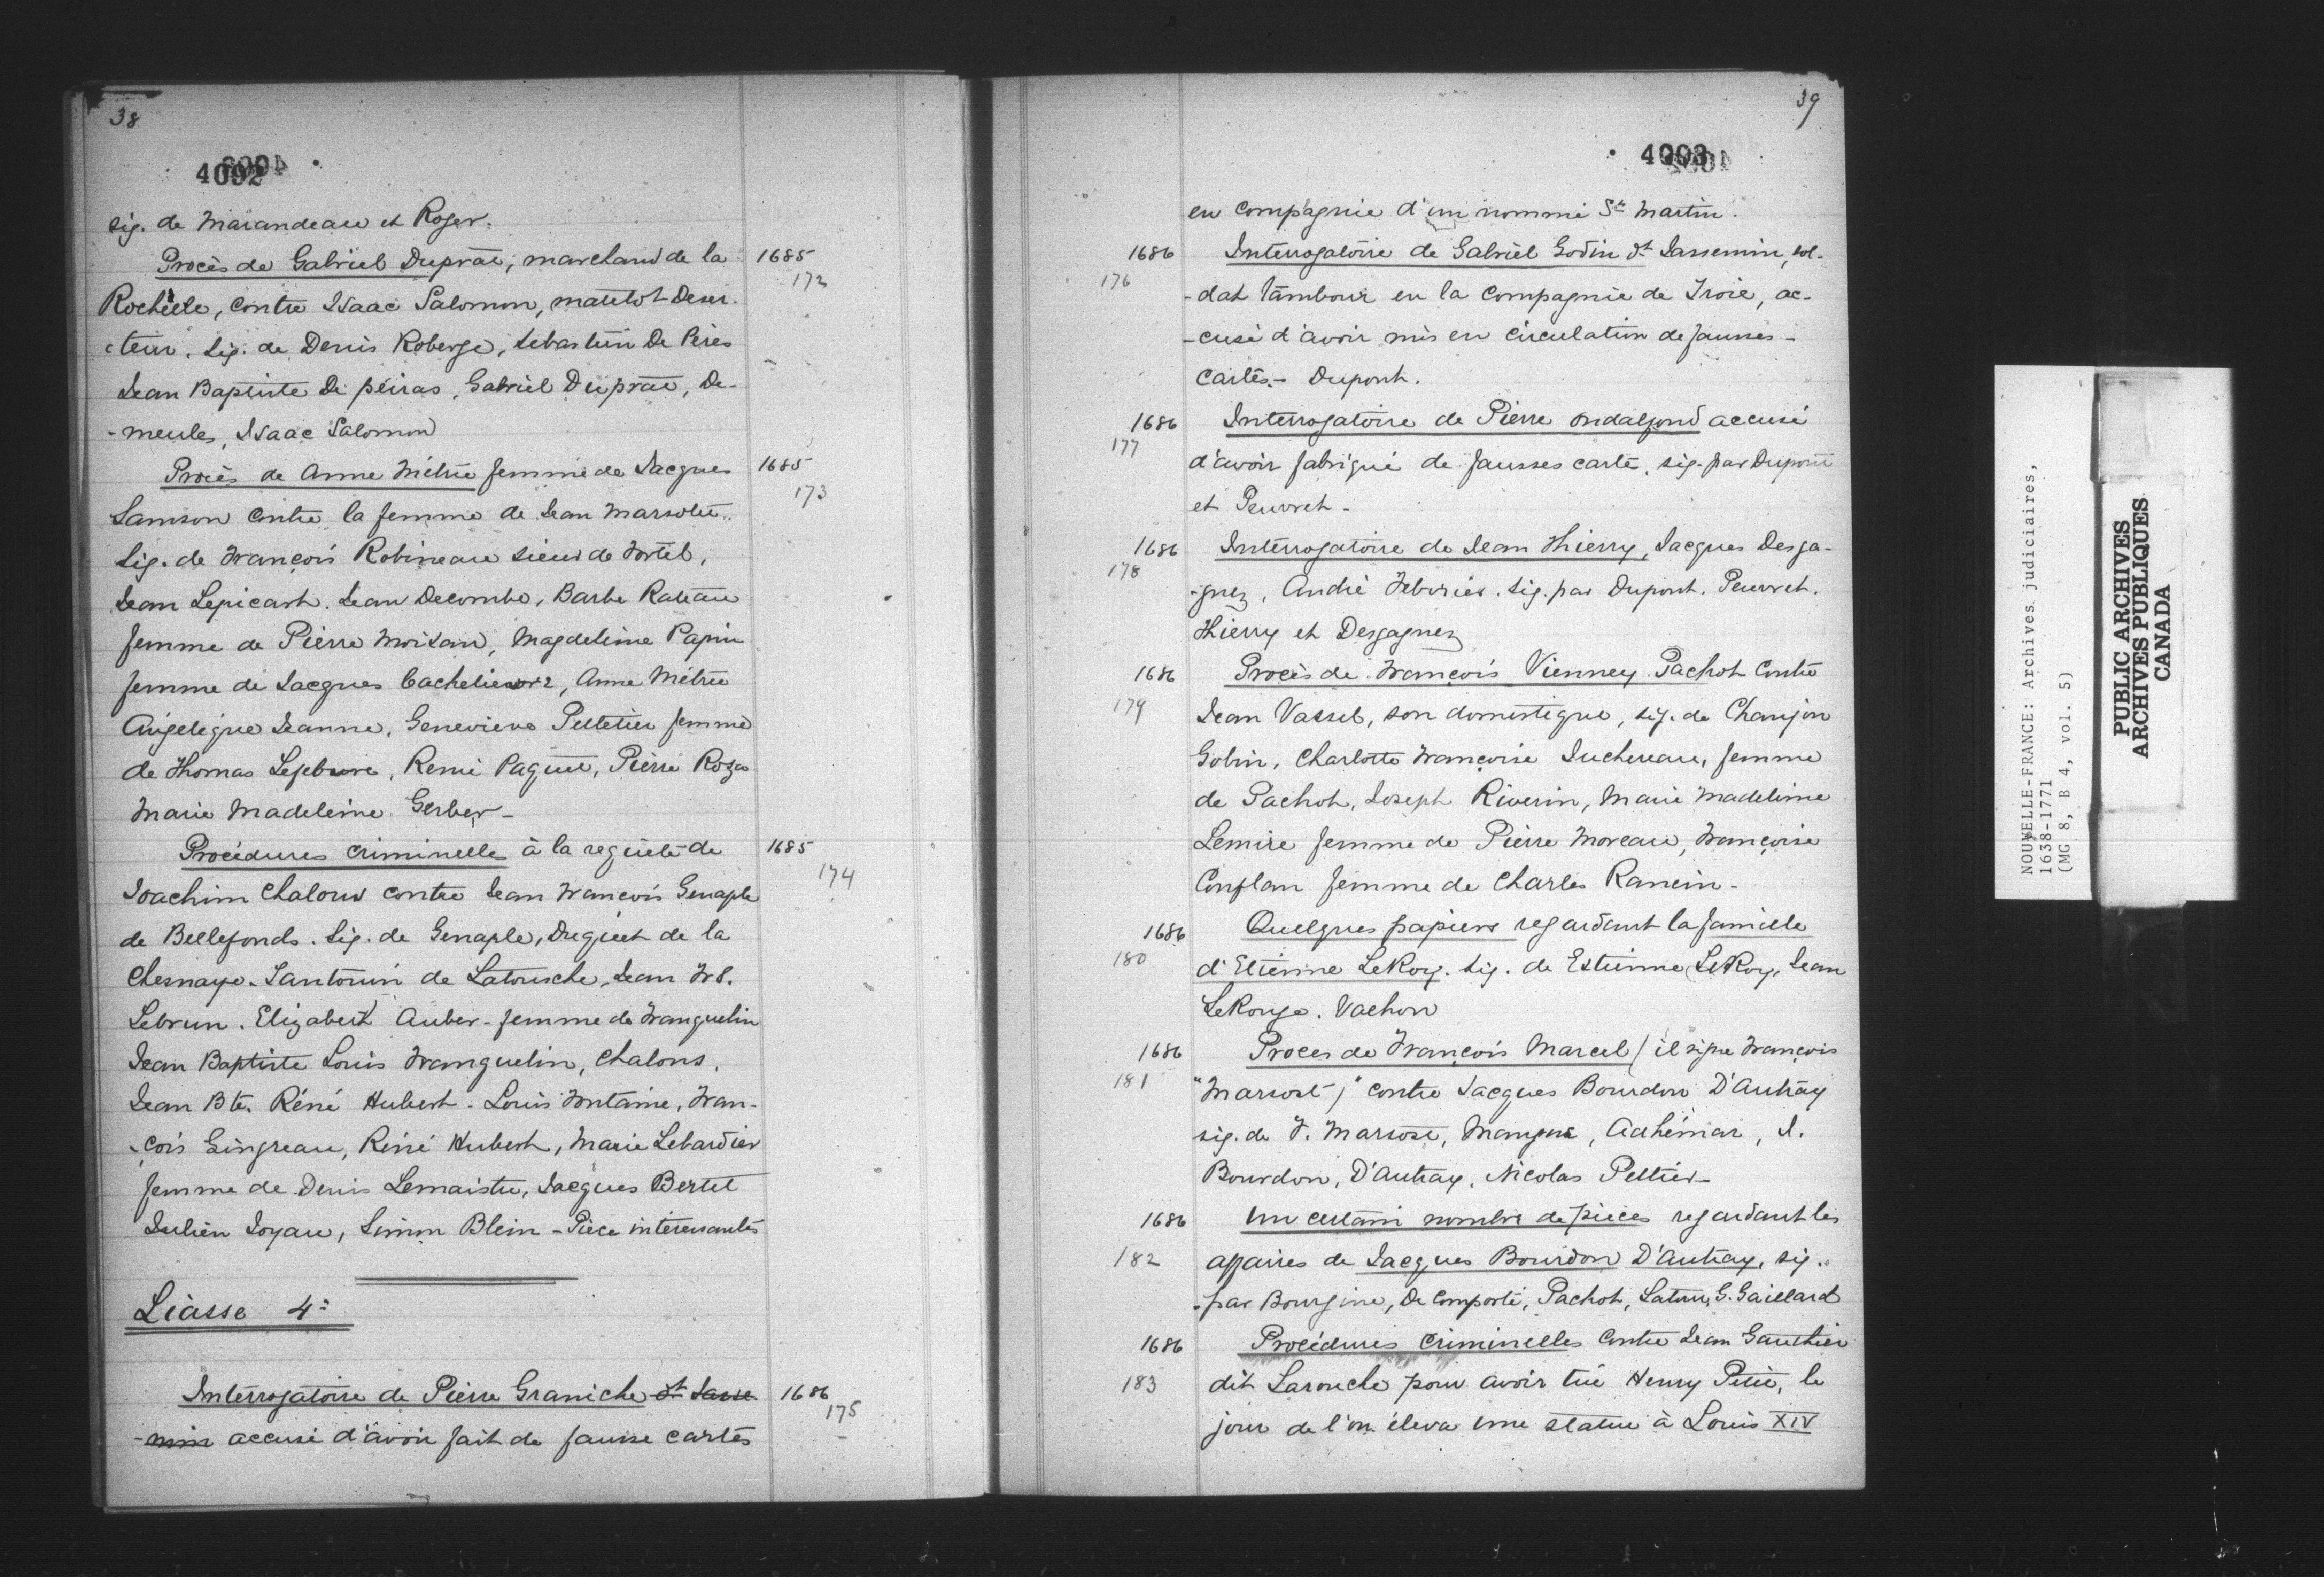 38
4092
sig. de Marandeau et Roger.
Procès de Gabriel Duprat, marchand de la
Rochelle, contre Isaac Salomon, matelot deser-
cteur. Sig. de Denis Roberge, Sebastien De Pères
Jean Baptiste De peiras, Gabriel Duprat, De-
-meules, Isaac Salomon
1685
172
Procès de Anne Métru femme de Jacques
Samson contre la femme de Jean Marsolet.
Sig. de François Robineau sieur de Fortel,
Jean Lepicart. Jean Decombe, Barbe Rateau
femme de Pierre Moisan, Magdeleine Papin
femme de Jacques Cachelievre, Anne Métru
Angelique Jeanne, Genevieve Pelletier femme
de Thomas Lefebvre, Remi Paquet, Pierre Roges
Marie Madeleine Gerber -
1685
173
Procédures criminelles à la requête de
Joachim Chalons contre Jean François Genaple
de Bellefonds. Sig. de Genaple, Duquet de la
Chesnaye. Santorum de Latousche, Jean Frs.
Lebrun. Elizabeth Auber - femme de Franquelin
Jean Baptiste Louis Franquelin, Chalons.
Jean Bte. Réné Hubert - Louis Fontaine, Fran-
-çois Gingreau, Réné Hubert, Marie Lebardier
femme de Denis Lemaistre, Jacques Bertet
Julien Joyau, Simon Blein - Pièce intéressantes
1685
174
Liasse 4e
Interrogatoire de Pierre Graniche dt Jasse-
-min accusé d'avoir fait de fausse cartes
1686
175
39
4093
en compagnie d'un nommé St Martin.
1686
176
Interrogatoire de Gabriel Godin dt Jassemin, sol-
-dat tambour en la compagnie de Troie, ac-
-cusé d'avoir mis en circulation de fausses -
cartes. - Dupont.
1686
177
Interrogatoire de Pierre Ondalfond accusé
d'avoir fabriqué de fausses carte, sig. par Dupont
et Peuvret -
1686
178
Interrogatoire de Jean Thierry, Jacques Desga-
-gnez, André Feburier. Sig. par Dupont. Peuvret.
Thierry et Desgagnez
1686
179
Procès de François Vienney Pachot contre
Jean Vassel, son domestique, sig. de Chanjon
Gobin, Charlotte Françoise Juchereau, femme
de Pachot, Joseph Riverin, Marie Madeleine
Lemire femme de Pierre Moreau, Françoise
Conflan femme de Charles Rancin -
1686
180
Quelques papiers regardant la famille
d'Etienne LeRoy. Sig. de Estienne LeRoy, Jean
LeRouge. Vachon
1686
181
Proces de François Marcel (il signe François
"Marsost)" contre Jacques Bourdon D'Autray
sig. de F. Marsost, Maugue, Adhémar, J.
Bourdon, D'Autray, Nicolas Peltier -
1686
182
Un certain nombre de pièces regardant les
affaires de Jacques Bourdon D'Autray, sig.
- par Bourgine, De Comporté, Pachot, Latour, G. Gaillard
1686
183
Procédures criminelles contre Jean Gauthier
dit Larouche pour avoir tué Henry Petit, le
jour de l'on éleva une statue à Louis XIV
NOUVELLE-FRANCE: Archives judiciaires,
1638-1771
(MG 8, B 4, vol. 5)
PUBLIC ARCHIVES
ARCHIVES PUBLIQUES
CANADA